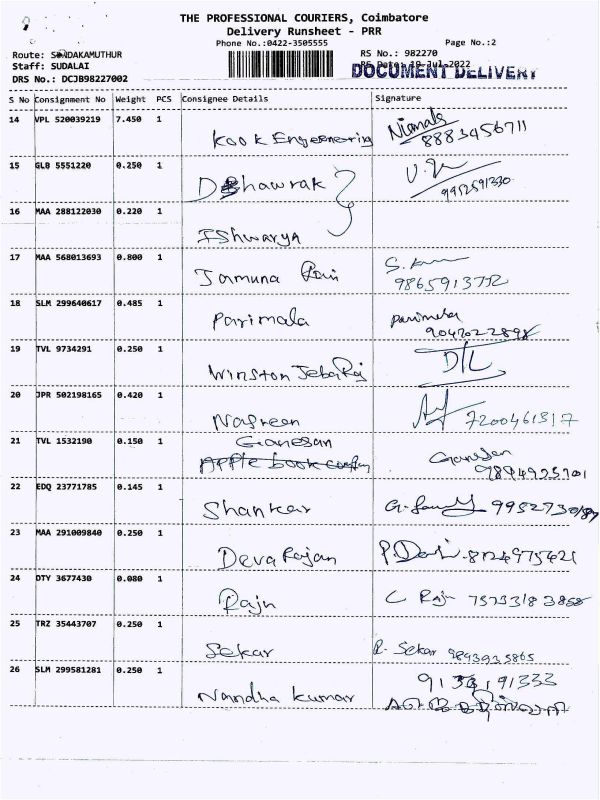 THE PROFESSIONAL COURIERS, Coimbatore
Delivery Runsheet - PRR
Phone No.:0422-3505555
Page No.:2
Route: SUNDAKAMUTHUR
RS No.: 982270
Staff: SUDALAI
RS Date: 19-Jul-2022
DOCUMENT DELIVERY
DRS No.: DCJB98227002
S No Consignment No Weight PCS Consignee Details Signature
14 VPL 520039219 7.450 1
Kook Engeenering Nirmala
8883456711
15 GLB 5551220 0.250 1
9952591330
16 MAA 288122030 0.220 1
Ishwarya
17 MAA 568013693 0.800 1
Jamuna Rani S.
18 SLM 299640617 0.485 1
Parimala parimala
19 TVL 9734291 0.250 1
Winston JebaRaj D/L
20 JPR 502198165 0.420 1
Nasreen 7200461317
21 TVL 1532190 0.150 1
Ganesan Ganesan
Apple book
22 EDQ 23771785 0.145 1
Shankar
23 MAA 291009840 0.250 1
Deva Rajan 8124975421
24 DTY 3677430 0.080 1
Raju C Raju
25 TRZ 35443707 0.250 1
Sekar R. Sekar
26 SLM 299581281 0.250 1
Nandha kumar